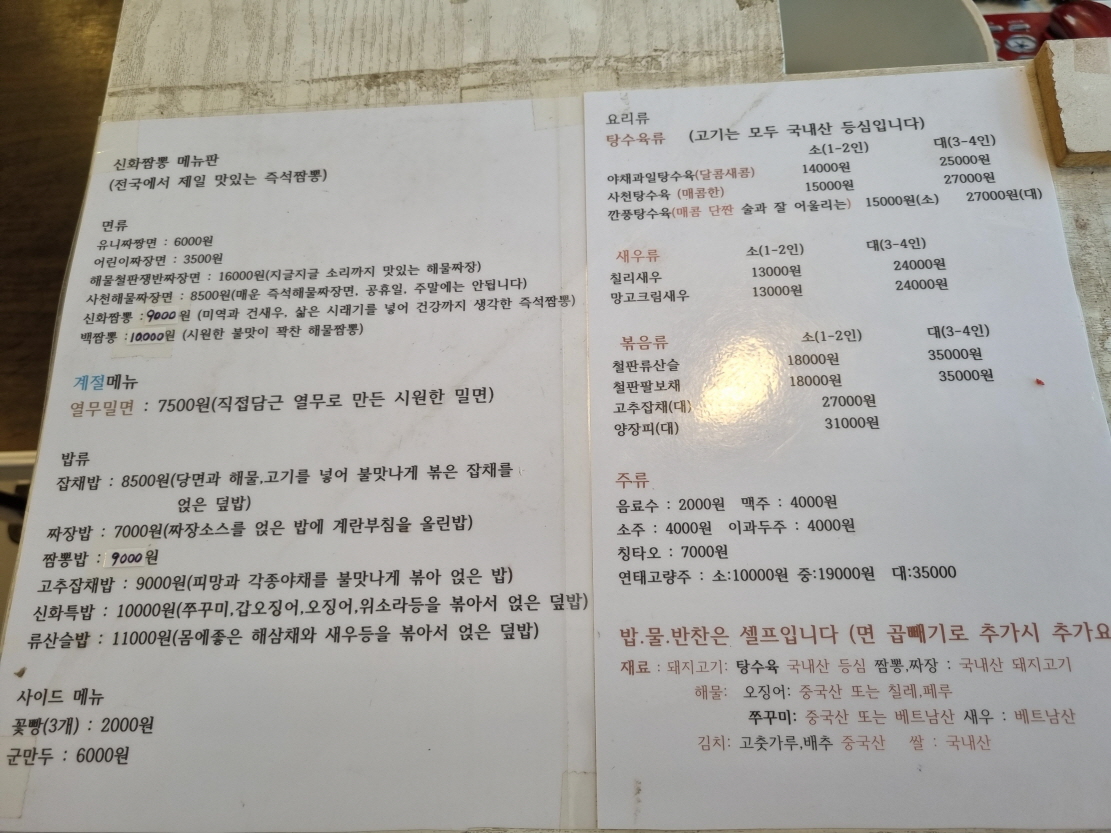 신화짬뽕 메뉴판
(전국에서 제일 맛있는 즉석짬뽕)
면류
유니짜짱면 : 6000원
어린이짜장면 : 3500원
해물철판쟁반짜장면 : 16000원(지글지글 소리까지 맛있는 해물짜장)
사천해물짜장면 : 8500원(매운 즉석해물짜장면, 공휴일, 주말에는 안됩니다)
신화짬뽕 : 9000원 (미역과 건새우, 삶은 시래기를 넣어 건강까지 생각한 즉석짬뽕)
백짬뽕 : 10,000원 (시원한 불맛이 꽉찬 해물짬뽕)
계절메뉴
열무밀면 : 7500원(직접담근 열무로 만든 시원한 밀면)
밥류
잡채밥 : 8500원(당면과 해물,고기를 넣어 불맛나게 볶은 잡채를
얹은 덮밥)
짜장밥 : 7000원(짜장소스를 얹은 밥에 계란부침을 올린밥)
짬뽕밥 : 9000원
고추잡채밥 : 9000원(피망과 각종야채를 불맛나게 볶아 얹은 밥)
신화특밥 : 10000원(쭈꾸미,갑오징어,오징어,위소라등을 볶아서 얹은 덮밥)
류산슬밥 : 11000원(몸에좋은 해삼채와 새우등을 볶아서 얹은 덮밥)
사이드 메뉴
꽃빵(3개) : 2000원
군만두 : 6000원
요리류
탕수육류 (고기는 모두 국내산 등심입니다)
소(1-2인) 대(3-4인)
야채과일탕수육(달콤새콤) 14000원 25000원
사천탕수육 (매콤한) 15000원 27000원
깐풍탕수육(매콤 단짠 술과 잘 어울리는) 15000원(소) 27000원(대)
새우류 소(1-2인) 대(3-4인)
칠리새우 13000원 24000원
망고크림새우 13000원 24000원
볶음류 소(1-2인) 대(3-4인)
철판류산슬 18000원 35000원
철판팔보채 18000원 35000원
고추잡채(대) 27000원
양장피(대) 31000원
주류
음료수 : 2000원 맥주 : 4000원
소주 : 4000원 이과두주 : 4000원
칭타오 : 7000원
연태고량주 : 소:10000원 중:19000원 대:35000
밥.물.반찬은 셀프입니다 (면 곱빼기로 추가시 추가요
재료 : 돼지고기: 탕수육 국내산 등심 짬뽕,짜장 : 국내산 돼지고기
해물: 오징어: 중국산 또는 칠레,페루
쭈꾸미: 중국산 또는 베트남산 새우 : 베트남산
김치: 고춧가루,배추 중국산 쌀 : 국내산